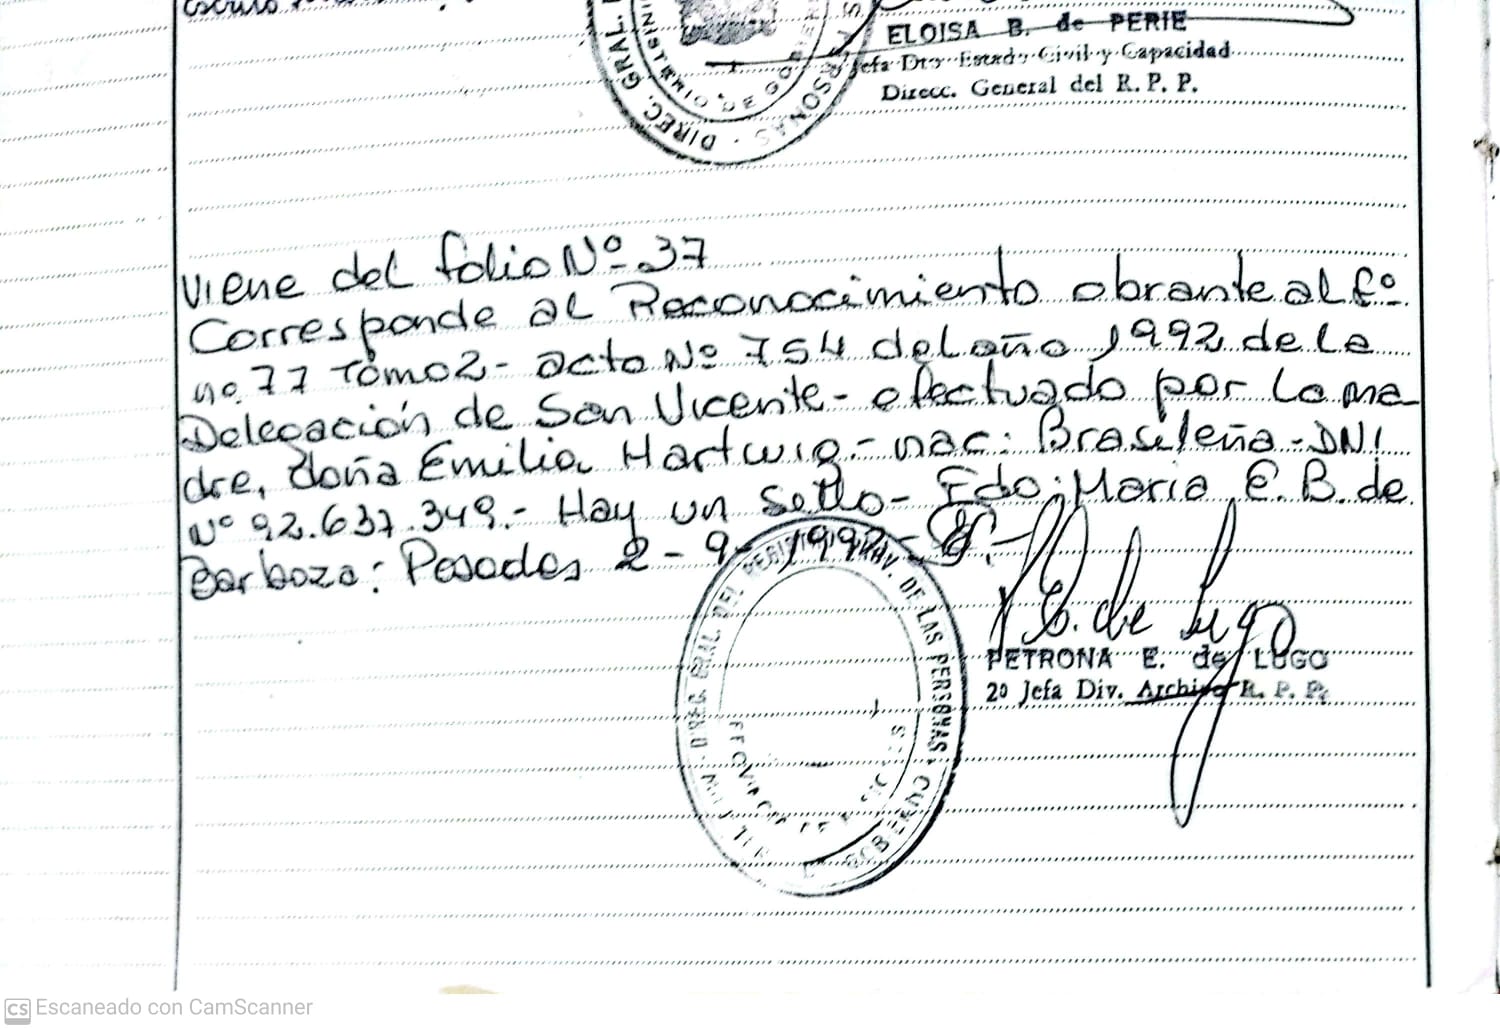 ELOISA B. de PERIE
Jefa Dto Estado Civil y Capacidad
Direcc. General del R. P. P.
DIREC. GRAL.
PERSONAS
MINISTERIO DE GOBIERNO
Viene del folio Nº 37
Corresponde al Reconocimiento obrante al fº
nº 77 Tomo 2 - acta Nº 754 del año 1992 de la
Delegación de San Vicente - efectuado por la ma
dre, doña Emilia Hartwig.- nac: Brasileña - DNI
Nº 92.637.349.- Hay un sello - Fdo: Maria E. B. de
Barboza: Posadas 2 - 9 - 1992 -
P. E. de Lugo
PETRONA E. de LUGO
2º Jefa Div. Archivo R. P. P.
GRAL. DEL REGIST. PROV. DE LAS PERSONAS
CS Escaneado con CamScanner